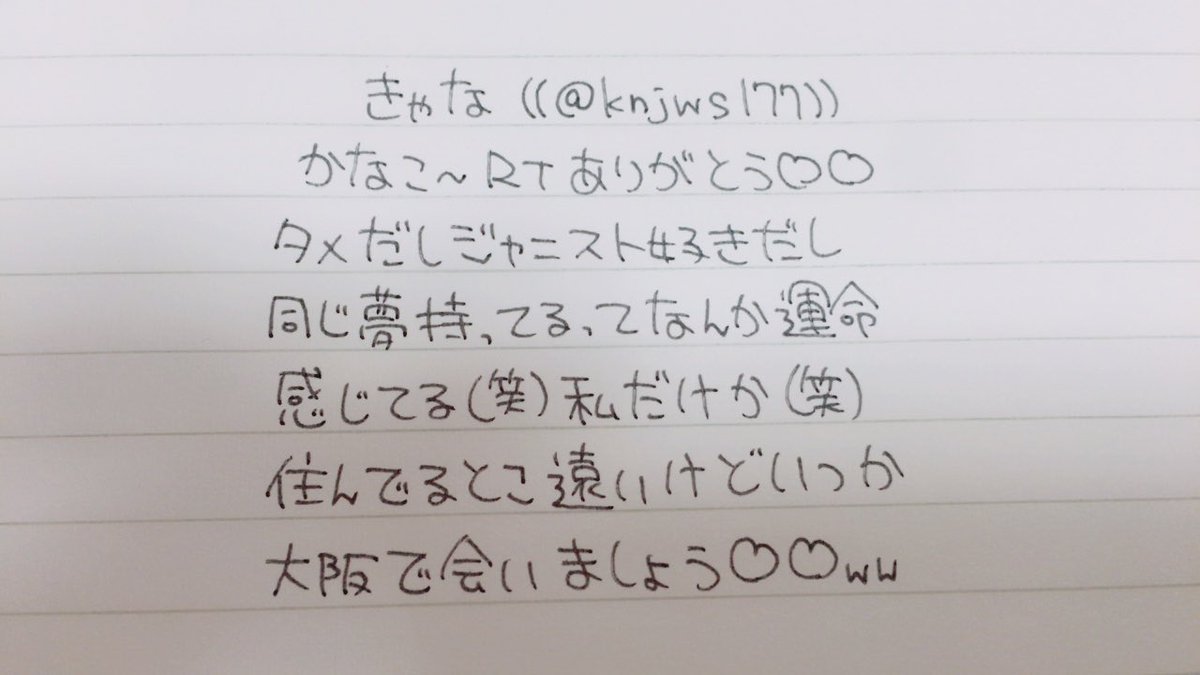 きゃな((@knjws177))
かなこ〜RTありがとう♡♡
タメだしジャニスト好きだし
同じ夢持ってるってなんか運命
感じてる(笑)私だけか(笑)
住んでるとこ遠いけどいつか
大阪で会いましょう♡♡ww